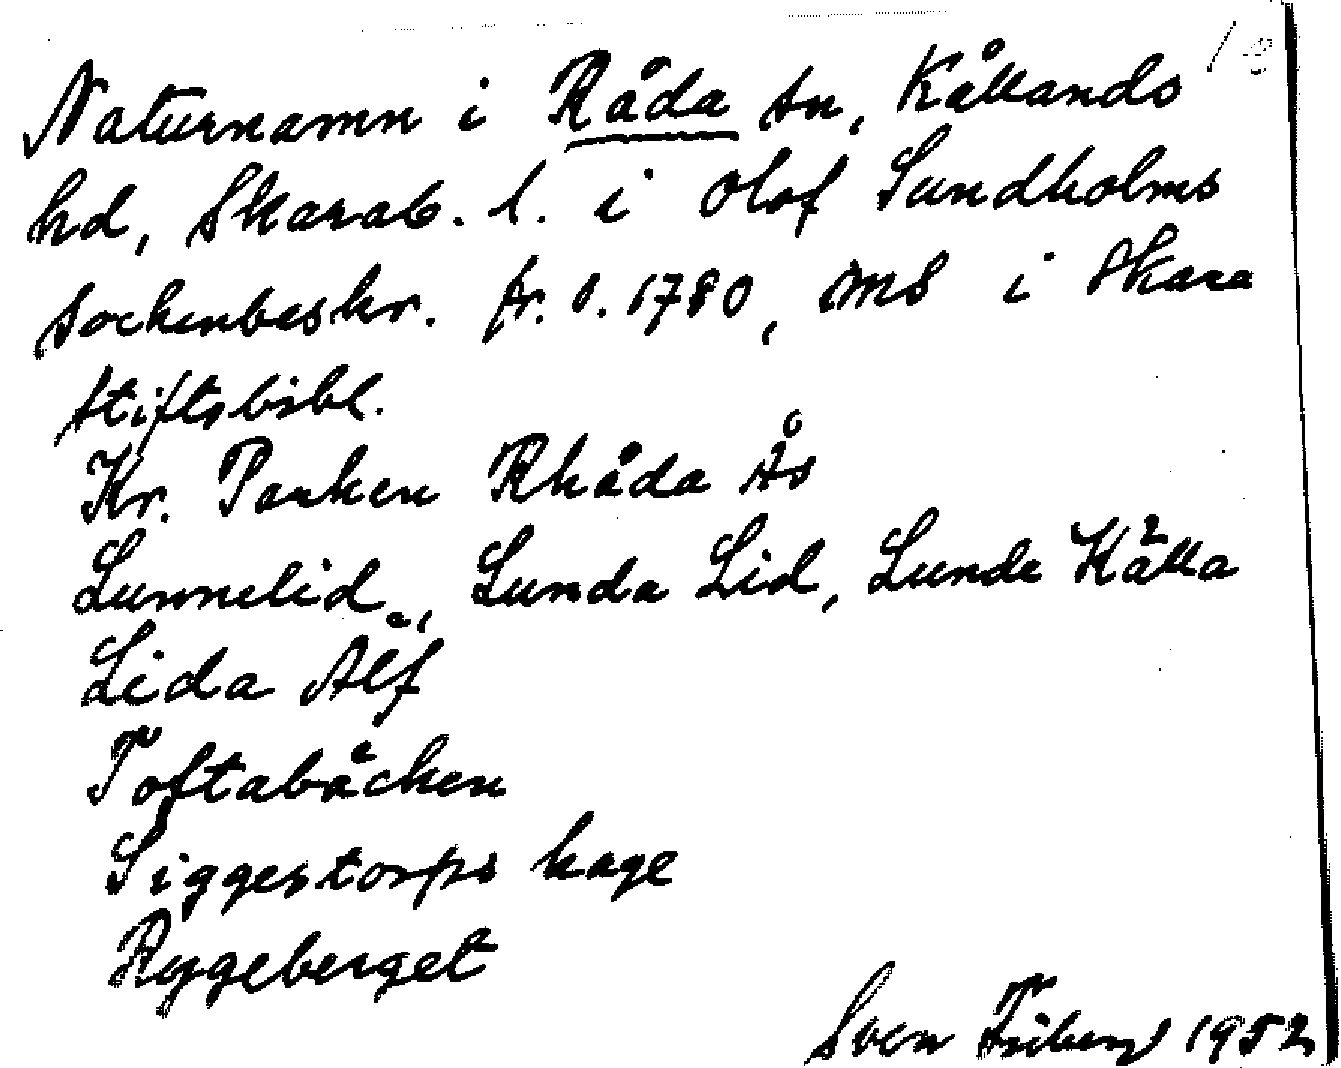 Naturnamn i Råda sn, Kållands
hd, Skarab. l. i Olof Sundholms
sockenbeskr. fr. o. 1780, MS i Skara
stiftsbibl.
Kr. Parken Rhåda Ås
Lunnelid, Lunda Lid, Lunda Källa
Lida Älf
Toftabäcken
Siggestorps hage
Ryggeberget
Sven Friberg 1952